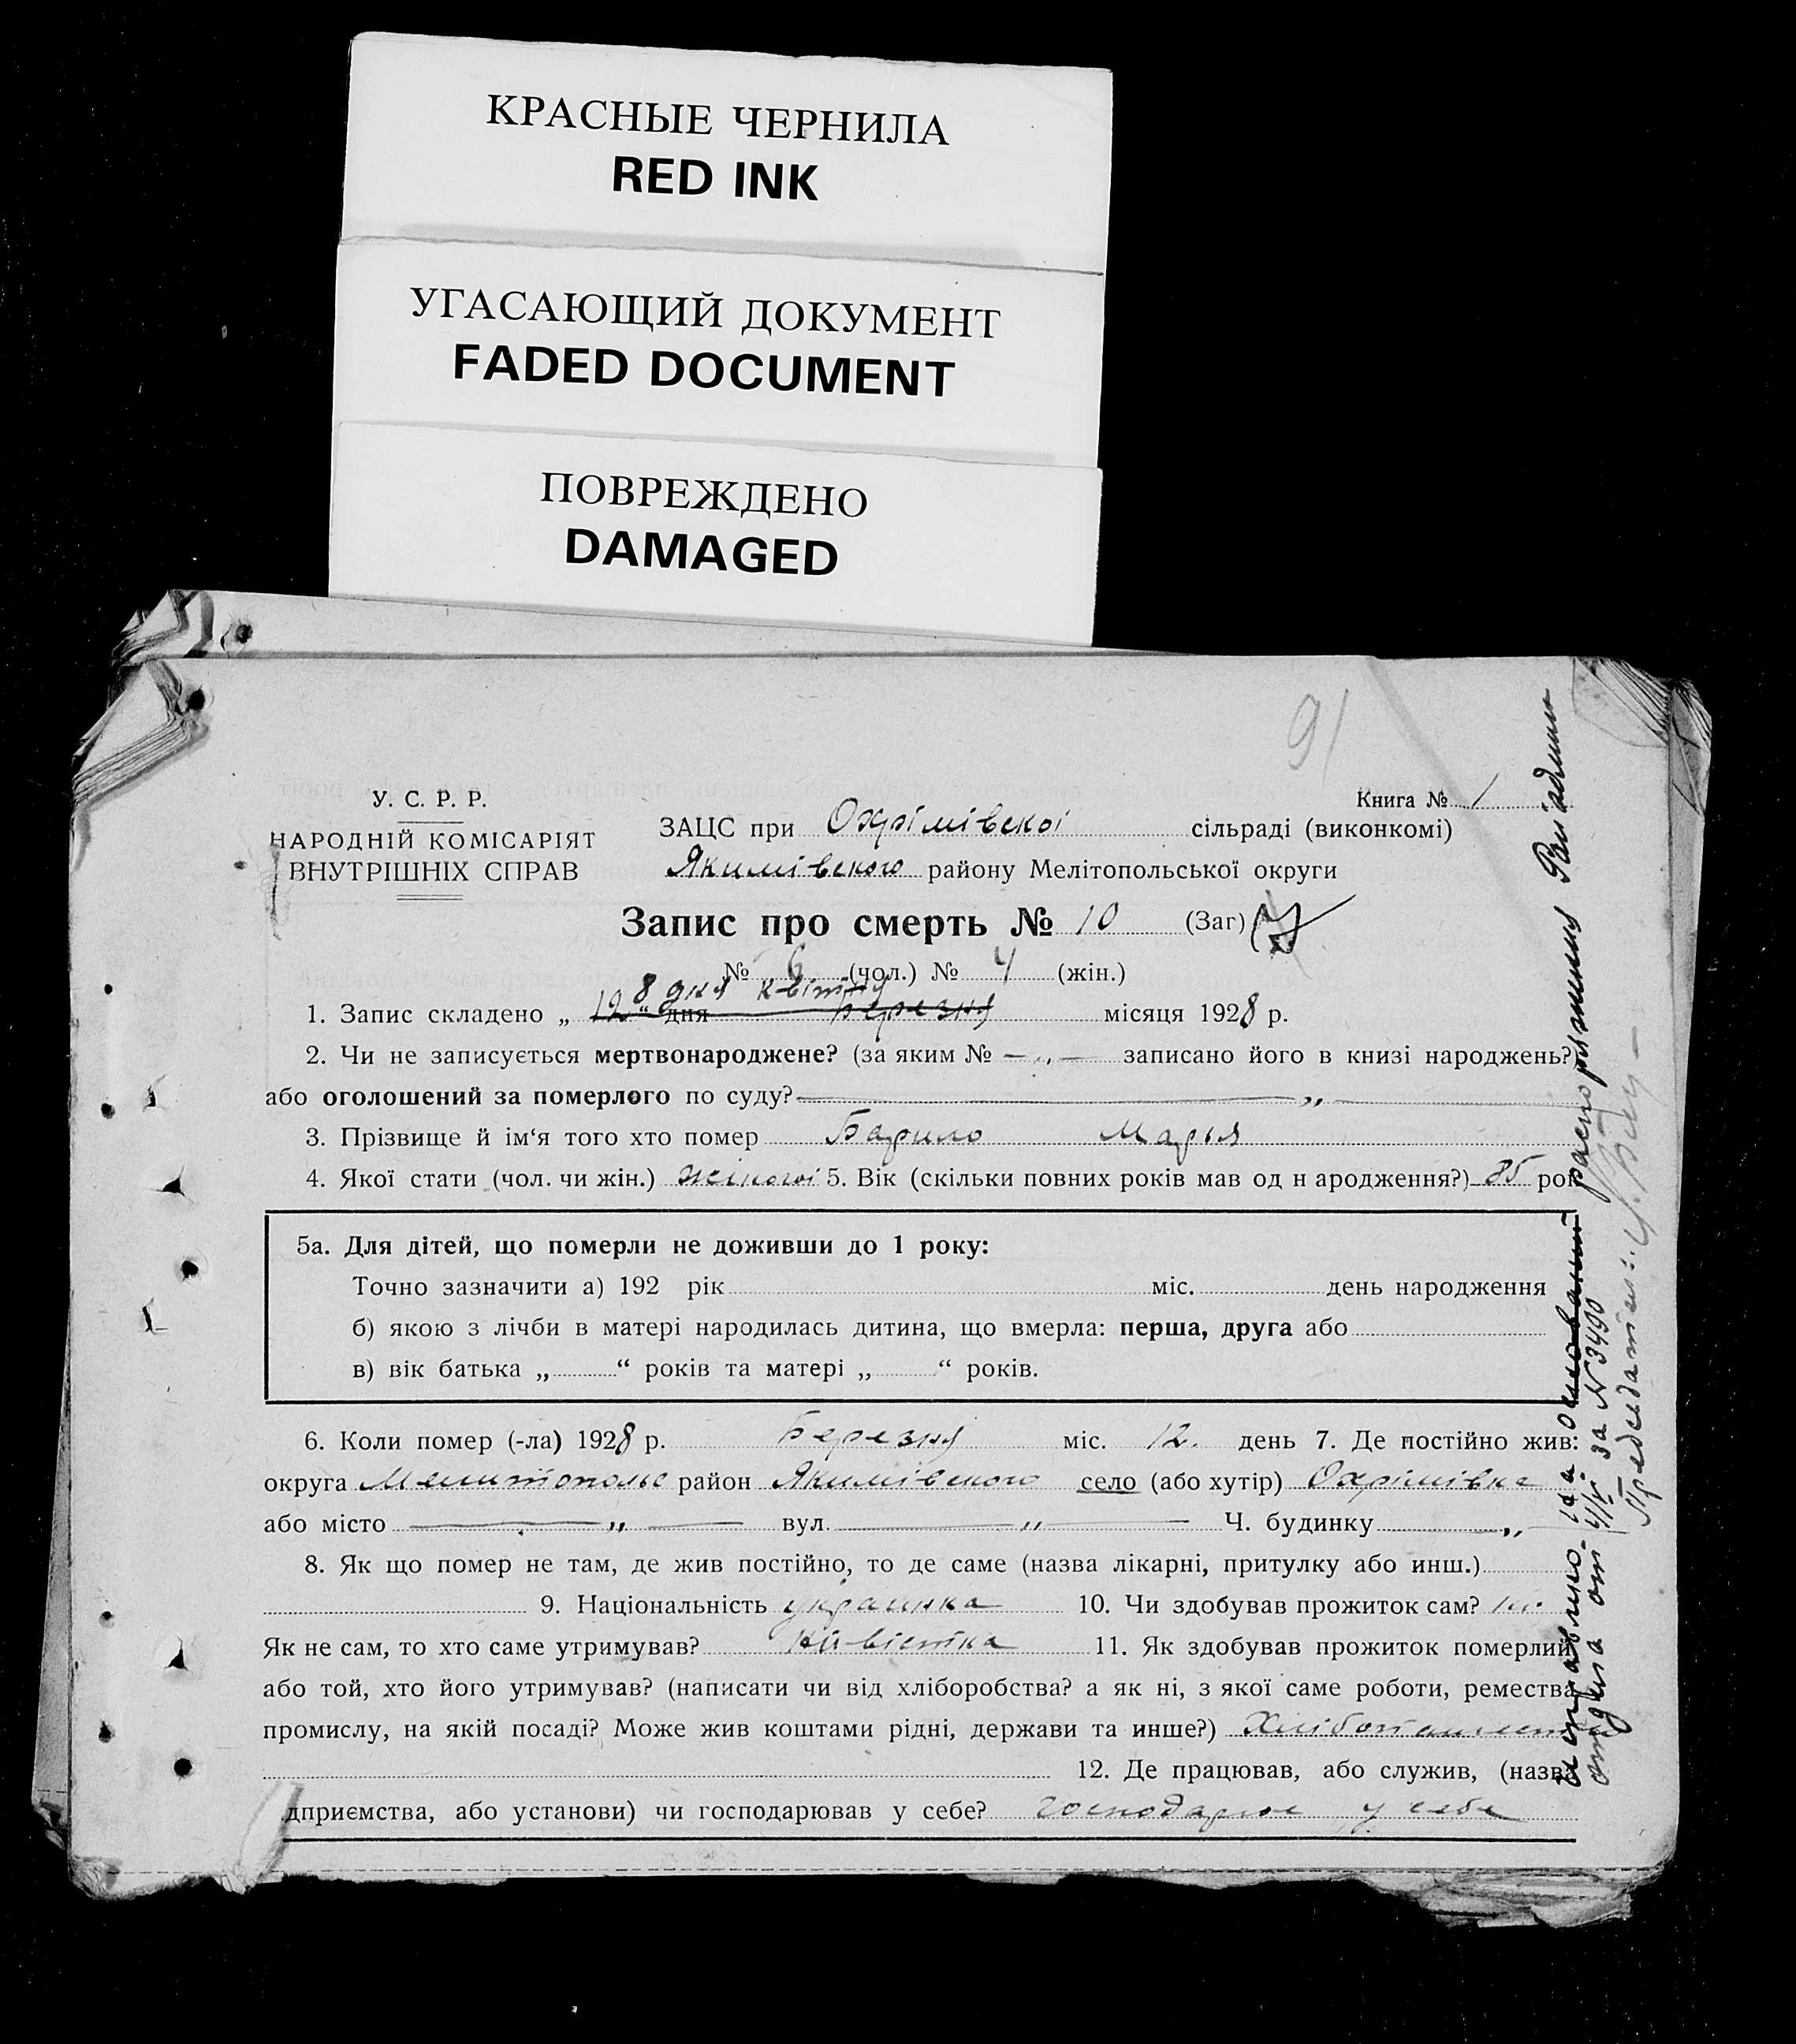 КРАСНЫЕ ЧЕРНИЛА
RED INK
УГАСАЮЩИЙ ДОКУМЕНТ
FADED DOCUMENT
ПОВРЕЖДЕНО
DAMAGED
91
У. С. Р. Р.
НАРОДНІЙ КОМІСАРІЯТ
ВНУТРІШНІХ СПРАВ
Книга № 1
ЗАЦС при Охрімівскої сільраді (виконкомі)
Якимівского району Мелітопольської округи
Запис про смерть № 10 (Заг)
№ 6 (чол.) № 4 (жін.)
8 дня квітня
1. Запис складено „ 12 “ дня березня місяця 1928 р.
2. Чи не записується мертвонароджене? (за яким № — „ — записано його в книзі народжень?)
або оголошений за померлого по суду? — „ —
3. Прізвище й ім‘я того хто помер Барило Марья
4. Якої стати (чол. чи жін.) жіночої 5. Вік (скільки повних років мав од н ародження?) 85 рок
5а. Для дітей, що померли не доживши до 1 року:
Точно зазначити а) 192 рік міс. день народження
б) якою з лічби в матері народилась дитина, що вмерла: перша, друга або
в) вік батька „ “ років та матері „ “ років.
6. Коли помер (-ла) 1928 р. Березня міс. 12. день 7. Де постійно жив:
округа Мелитопольс район Якимівского село (або хутір) Охрімівка
або місто — „ — вул. — „ — Ч. будинку — „
8. Як що помер не там, де жив постійно, то де саме (назва лікарні, притулку або инш.)
9. Національність украинка 10. Чи здобував прожиток сам?
Як не сам, то хто саме утримував? 11. Як здобував прожиток померлий
або той, хто його утримував? (написати чи від хліборобства? а як ні, з якої саме роботи, ремества
промислу, на якій посаді? Може жив коштами рідні, держави та инше?)
12. Де працював, або служив, (назва
дприємства, або установи) чи господарював у себе? господарює у себе
исправлено на основании распоряжения
отдела от за № 3490
Председатель: